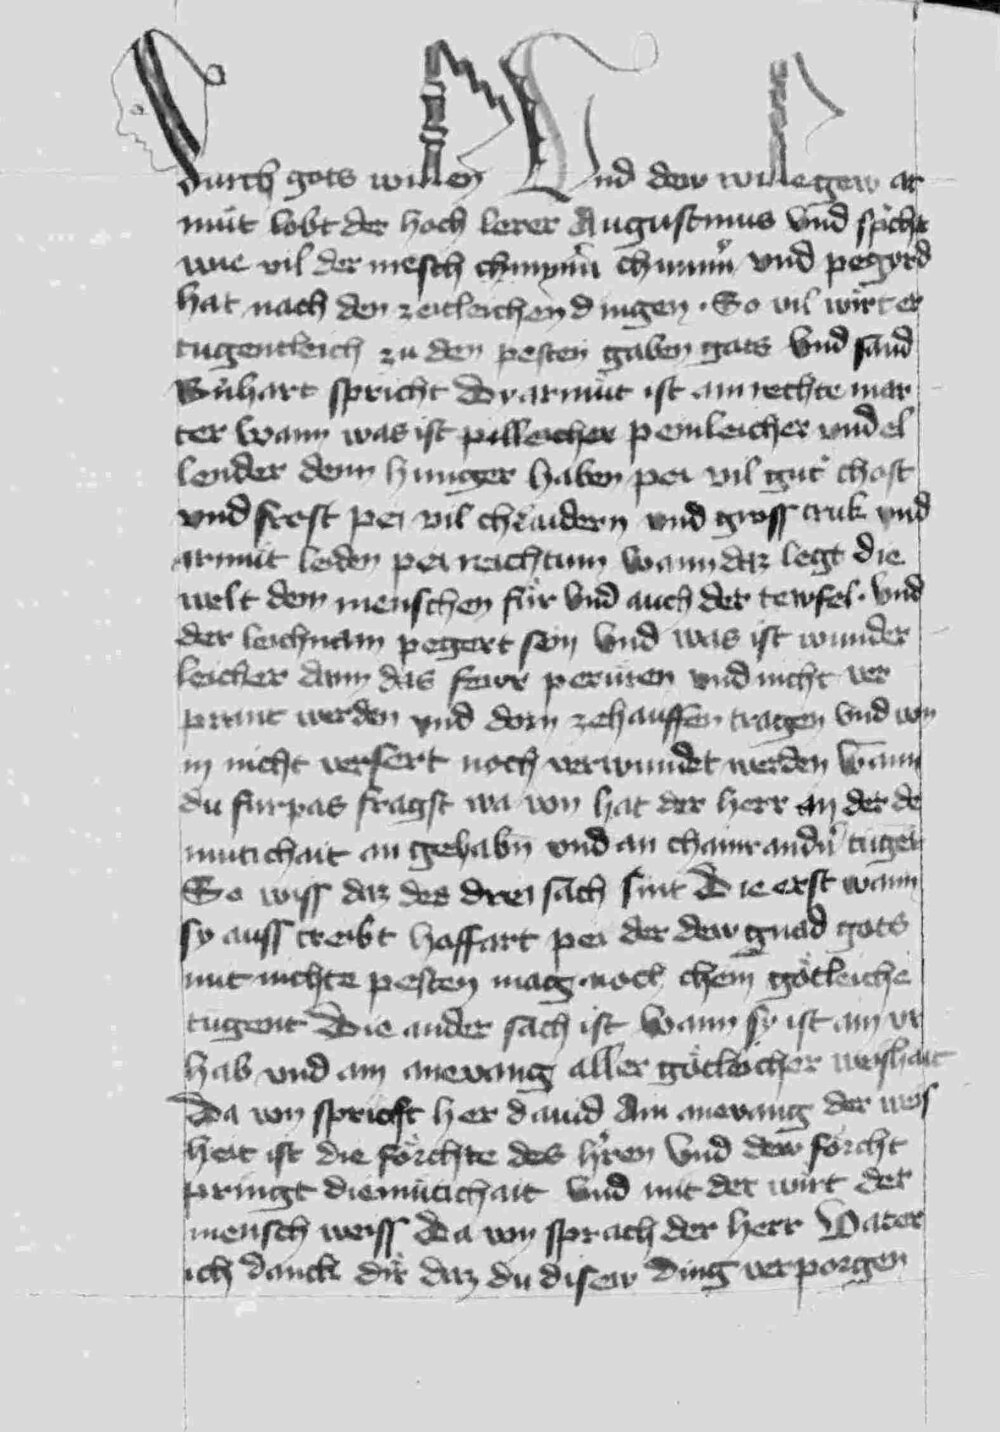 durch gots willen Vnd dew willegew ar
mut lobt der hoch lerer Augustinus vnd spricht
wie vil der mensch chumm vnd pegird
hat nach den zeitleichen dingen · So vil wirt er
tugentleich zu den pesten gaben gots vnd sand
Bernhart spricht Dy armut ist ain rechte mar
ter wann was ist pilleicher peinleicher vnd el
lender denn hunger haben pei vil guter chost
vnd frost pei vil chlaidern vnd gross truk vnd
armut leiden pei reichtum wann daz legt die
welt dem menschen für vnd auch der tewfel · vnd
der leichnam pegert sein vnd was ist wunder
leicher dann das fewr perüren vnd nicht ver
prant werden vnd dorn zehauffen tragen vnd von
in nicht versert noch verwundet werden wann
du furpas fragst wa von hat der herr an der de
mutichait an gehabn vnd an chainr andern tugent
So wiss daz des drei sach sint Die erst wann
sy auss treibt hoffart pei der dew gnad gots
mit nichte pesten mag noch chein götleiche
tugent Die ander sach ist wann sy ist ain vr
hab vnd ain anevang aller götleicher weishait
Da von spricht her dauid Ain anevang der weis
heit ist die förchte des hern vnd dew forcht
pringt diemutichait vnd mit der wirt der
mensch weiss Da von sprach der herr Vater
ich danck dir daz du disew ding verporgen